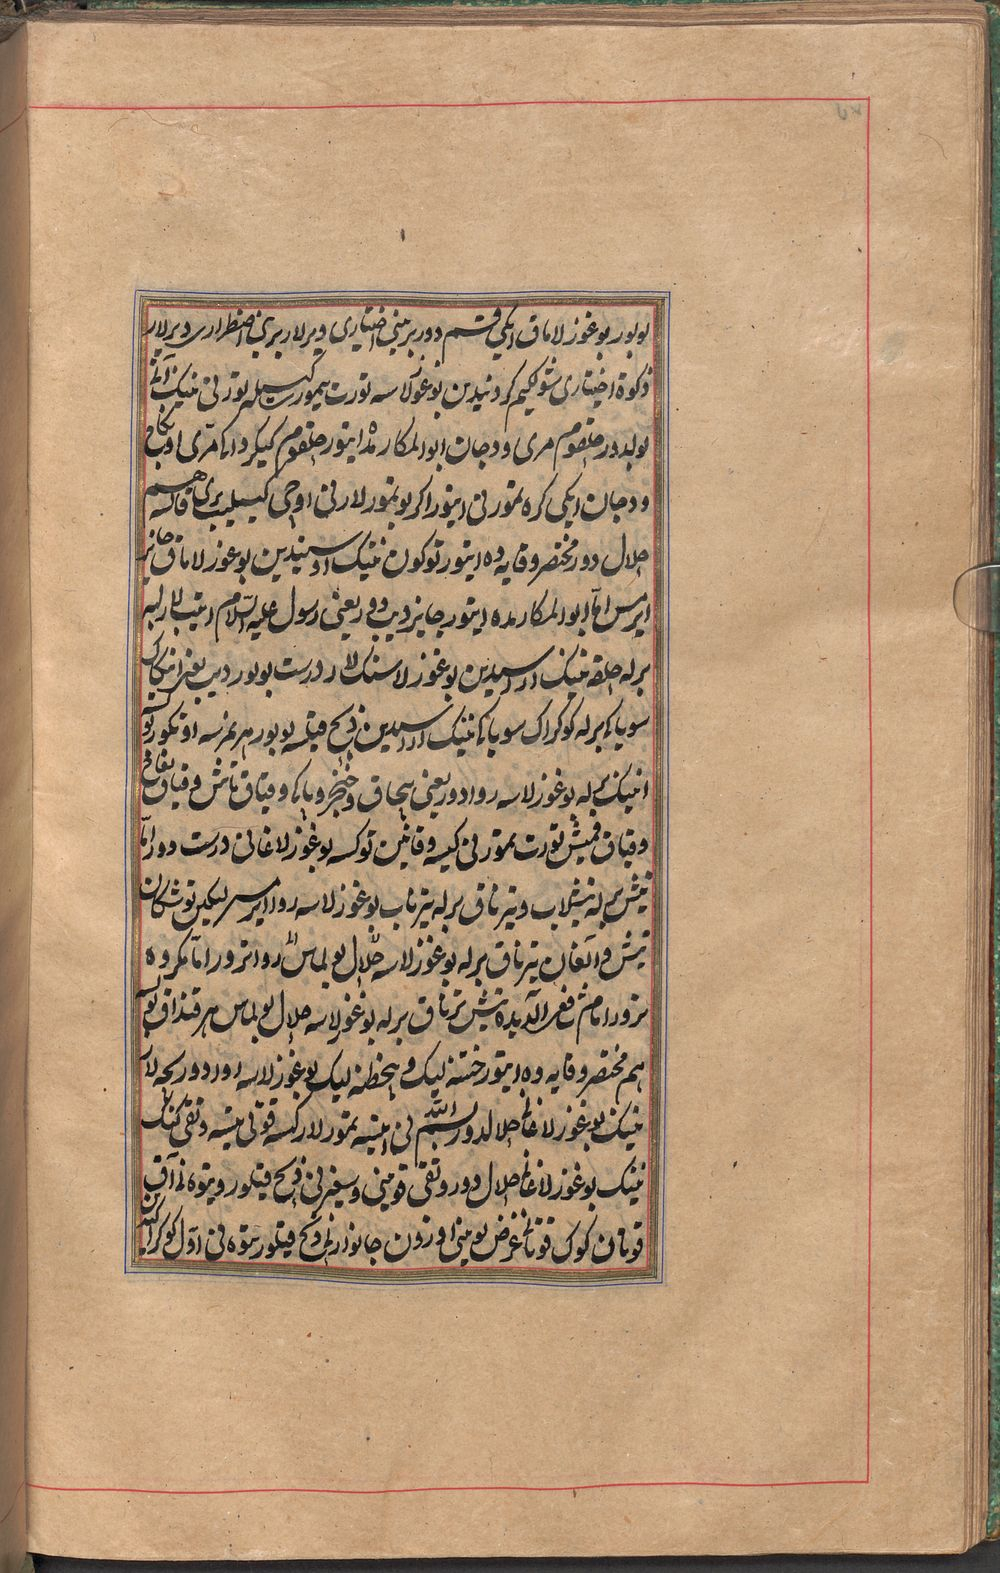 بولور بوغوزلاماق ایکی قسم دور بریینی اختیاری دیرلار برین اضطراری دیرلار
ذکوة اختیاری شولکیم کردنیدین بوغوزلاسه تورت تیمورت کسیله تورنی نینک آتی
بولدور حلقوم مری ودجان ابوالمکارمده ایتور حلقوم کیکرداک مری اوب
ودجان ایکی کره تمورنی ایتور اکر بو تمورلارنی اوچی کیسیلیب بری هم قالسه
حلال دور مختصر وقایه ده ایتور توکون نینک اوستیندین بوغوزلاماق جایز
ایرمس اما ابوالمکارمده ایتور جایز دیب دور یعنی رسول علیه السلام ایتیب لار لبه
برله حلقه نینک اراسیدین بوغوزلاسنک لار درست بولور دیب یعنی انکاک
سویاکی برله کوکراک سویاکی نینک اراسیدین ذبح قیلسه بولور هر نمرسه اوتکور بولسه
انینک برله بوغوزلاسه روادور یعنی پیچاق و خنجر و یاکی و قیاق تاش و قیاق
و قیاق قمیش تورت تمورنی کیسه و قانین توکسه بوغوزلاغانی درست دور اما
تیش برله تیشلاب و تیرناق برله تیرناب بوغوزلاسه روا ایرمس لیکن توشکان
تیش و آلغان تیرناق برله بوغوزلاسه حلال بولماس روا ترور اما مکروه
ترور امام شافعی الدیده تیش ترناق برله بوغوزلاسه حلال بولماس هر قنداق بولسه
هم مختصر وقایه ده ایتور خسته لیک و پخطه لیک بوغوزلاسه روادور بچه لار
نینک بوغوزلاغانی حلالدور بسم الله نی ایتسه تمورلار کسه قوتی یتسه و تقی کنک
نینک بوغوزلاغانی حلال دور و تقی قوینی و سغیرنی ذبح قیلور و تیوه نی آق
قوتان کوک قوتانی غرض بوینی اوزون جانوارنی ذبح قیلور تیوه نی اول کوکراکیدین